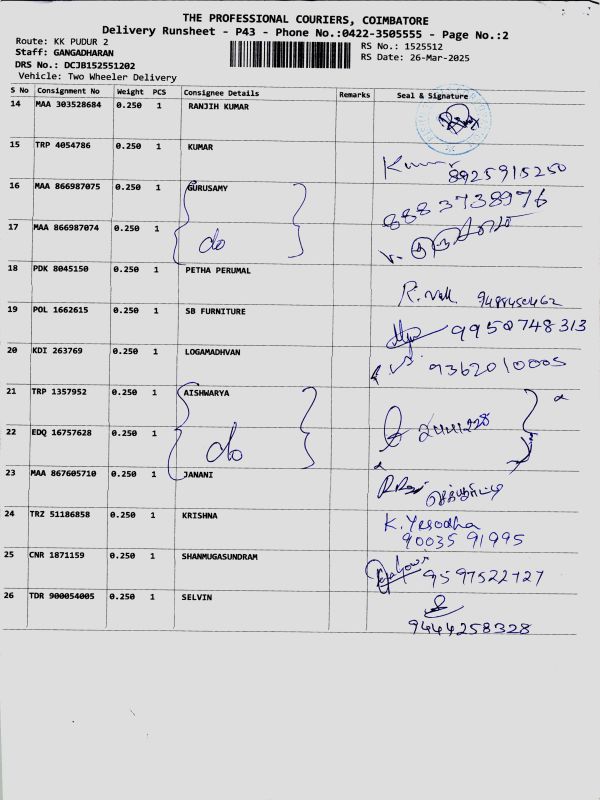 THE PROFESSIONAL COURIERS, COIMBATORE
Delivery Runsheet - P43 - Phone No.:0422-3505555 - Page No.:2
Route: KK PUDUR 2
RS No.: 1525512
Staff: GANGADHARAN
RS Date: 26-Mar-2025
DRS No.: DCJB152551202
Vehicle: Two Wheeler Delivery
S No Consignment No Weight PCS Consignee Details Remarks Seal & Signature
14 MAA 303528684 0.250 1 RANJIH KUMAR
15 TRP 4054786 0.250 1 KUMAR Kumar
8925915250
16 MAA 866987075 0.250 1 GURUSAMY 8883738976
17 MAA 866987074 0.250 1 do
18 PDK 8045150 0.250 1 PETHA PERUMAL
19 POL 1662615 0.250 1 SB FURNITURE 9950748313
20 KDI 263769 0.250 1 LOGAMADHVAN 9362010005
21 TRP 1357952 0.250 1 AISHWARYA
22 EDQ 16757628 0.250 1 do
23 MAA 867605710 0.250 1 JANANI
24 TRZ 51186858 0.250 1 KRISHNA K. Yesodha
90035 91995
25 CNR 1871159 0.250 1 SHANMUGASUNDRAM 9597522727
26 TDR 900054005 0.250 1 SELVIN
9444258328